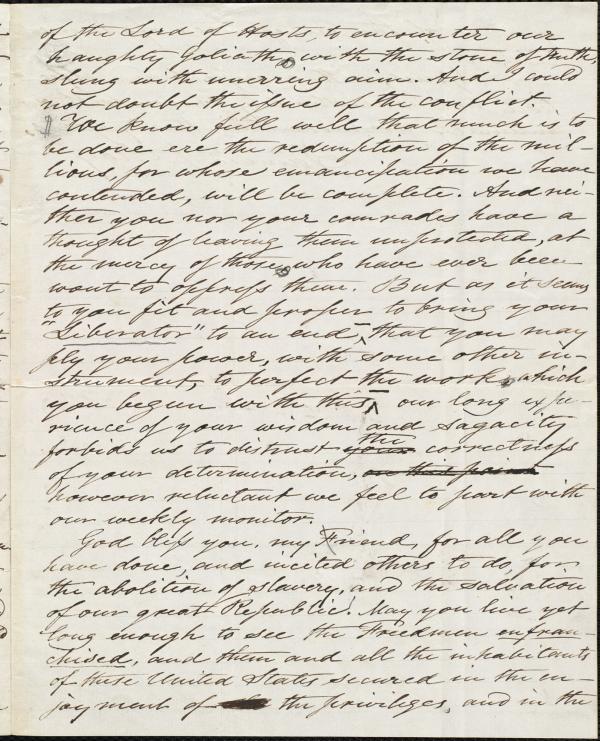 of the Lord of Hosts, to encounter our
haughty Goliath, with the stone of truth,
slung with unerring aim. And I could
not doubt the issue of the conflict.
We know full well that much is to
be done ere the redemption of the mil-
lions, for whose emancipation we have
contended, will be complete. And nei-
ther you nor your comrades have a
thought of leaving them unprotected, at
the mercy of those who have ever been
wont to oppress them. But as it seems
to you fit and proper to bring your
"Liberator" to an end, that you may
ply your power, with some other in-
strument, to perfect the work which
you begun with this, our long expe-
rience of your wisdom and sagacity
forbids us to distrust the correctness
of your determination, on this point
however reluctant we feel to part with
our weekly monitor.
God bless you, my Friend, for all you
have done, and incited others to do, for
the abolition of slavery, and the salvation
of our great Republic. May you live yet
long enough to see the Freedmen enfran-
chised, and them and all the inhabitants
of these United States secured in the en-
joyment of the privileges, and in the